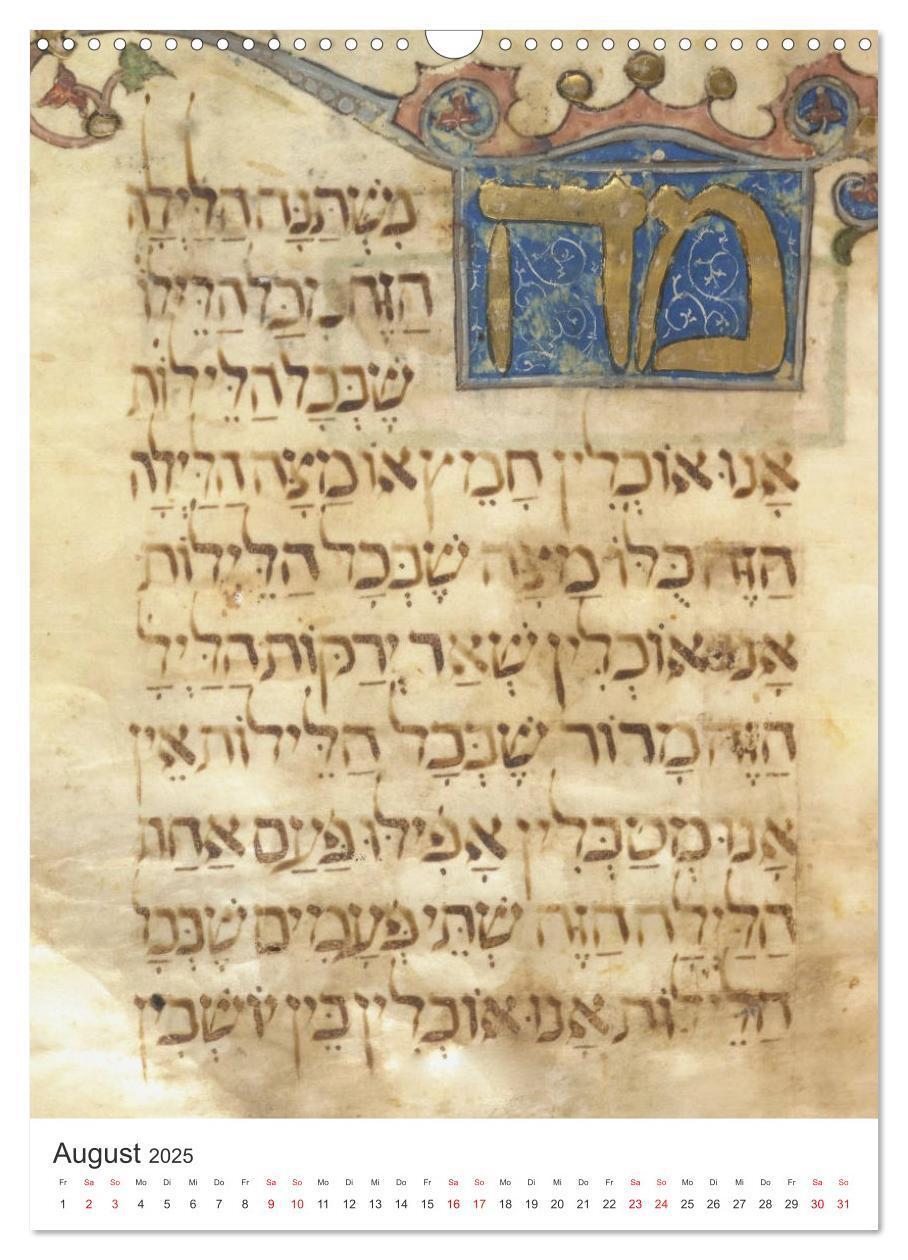 מה
מִשְׁתַּנָּה הַלַּיְלָה
הַזֶּה מִכָּל הַלֵּילוֹ
שֶׁבְּכָל הַלֵּילוֹת
אָנוּ אוֹכְלִין חָמֵץ אוֹ מַצָּה הַלַּיְלָה
הַזֶּה כֻּלּוֹ מַצָּה שֶׁבְּכָל הַלֵּילוֹת
אָנוּ אוֹכְלִין שְׁאַר יְרָקוֹת הַלַּיְלָ
הַזֶּה מָרוֹר שֶׁבְּכָל הַלֵּילוֹת אֵין
אָנוּ מְטַבְּלִין אֲפִילוּ פַּעַם אַחַת
הַלַּיְלָה הַזֶּה שְׁתֵּי פְּעָמִים שֶׁבְּכָל
הַלֵּילוֹת אָנוּ אוֹכְלִין בֵּין יוֹשְׁבִין
August 2025
Fr Sa So Mo Di Mi Do Fr Sa So Mo Di Mi Do Fr Sa So Mo Di Mi Do Fr Sa So Mo Di Mi Do Fr Sa So
1 2 3 4 5 6 7 8 9 10 11 12 13 14 15 16 17 18 19 20 21 22 23 24 25 26 27 28 29 30 31